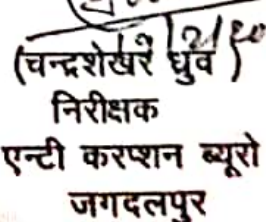 (चन्द्रशेखर ध्रुव)
निरीक्षक
एन्टी करप्शन ब्यूरो
जगदलपुर